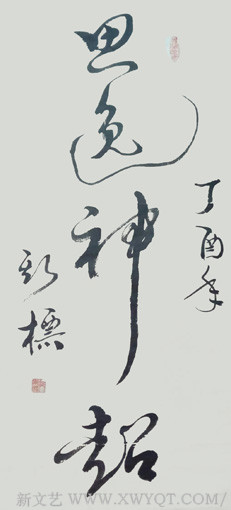 丁酉年
思逸神超
彭標
新文艺 WWW.XWYQT.COM/